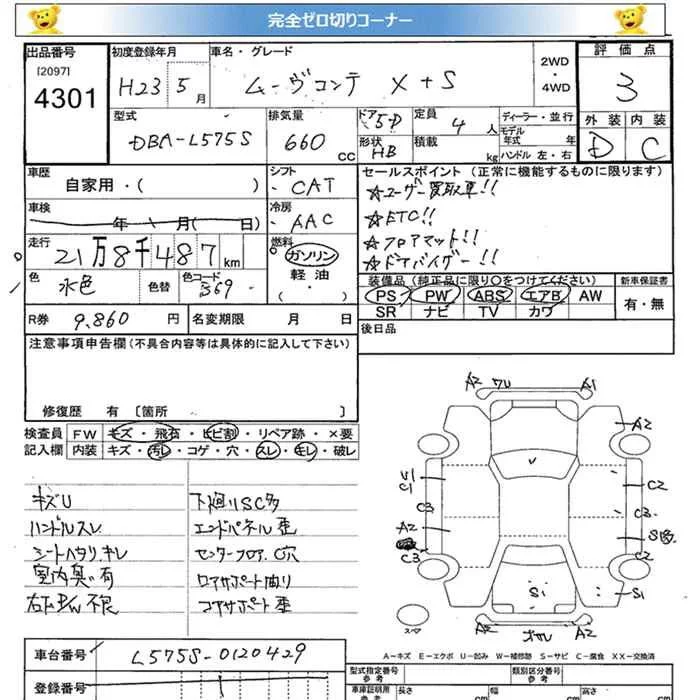 完全ゼロ切りコーナー
出品番号 初度登録年月 車名・グレード 2WD・4WD 評価点
[2097]
4301 H23 5月 ムーヴコンテ X+S 3
型式 排気量 ドア 5D 定員 4人 ディーラー・並行 外装 内装
DBA-L575S 660cc 形状 HB 積載 kg モデル年式 年 D C
ハンドル 左・右
車歴 シフト セールスポイント(正常に機能するものに限ります)
自家用・( ) CAT ☆ユーザー買取車!!
車検 年 月( 日) 冷房 AAC ☆ETC!!
走行 21万8千487km 燃料 ガソリン ☆フロアマット!!
軽油 ☆ドアバイザー!!
色 水色 色替 色コード ・( )
装備品(純正品に限り○をつけてください) 新車保証書
PS PW ABS エアB AW 有・無
SR ナビ TV カワ
R券 9,860円 名変期限 月 日 後日品
注意事項申告欄(不具合内容等は具体的に記入して下さい)
修復歴 有 〔箇所 〕
検査員 FW キズ・飛石・ヒビ割・リペア跡・×要
記入欄 内装 キズ・汚レ・コゲ・穴・スレ・キレ・破レ
キズU 下廻りSC多
ハンドルスレ エンドパネル歪
シートヘタリ、キレ センターフロア、C穴
室内臭い有 ロアサポート曲り
P/W不良 コアサポート歪
A2 ワレ A1
A2
U1
C1 C2
C3 C3
A2
C3 C2
S1 S1
A2 A2
スペア
A-キズ E-エクボ U-凹み W-補修跡 S-サビ C-腐食 XX-交換済
車台番号 L575S-0120429
登録番号
型式指定番号 参考 類別区分番号 参考
車庫証明用 参考 長さ cm 幅 cm 高さ cm